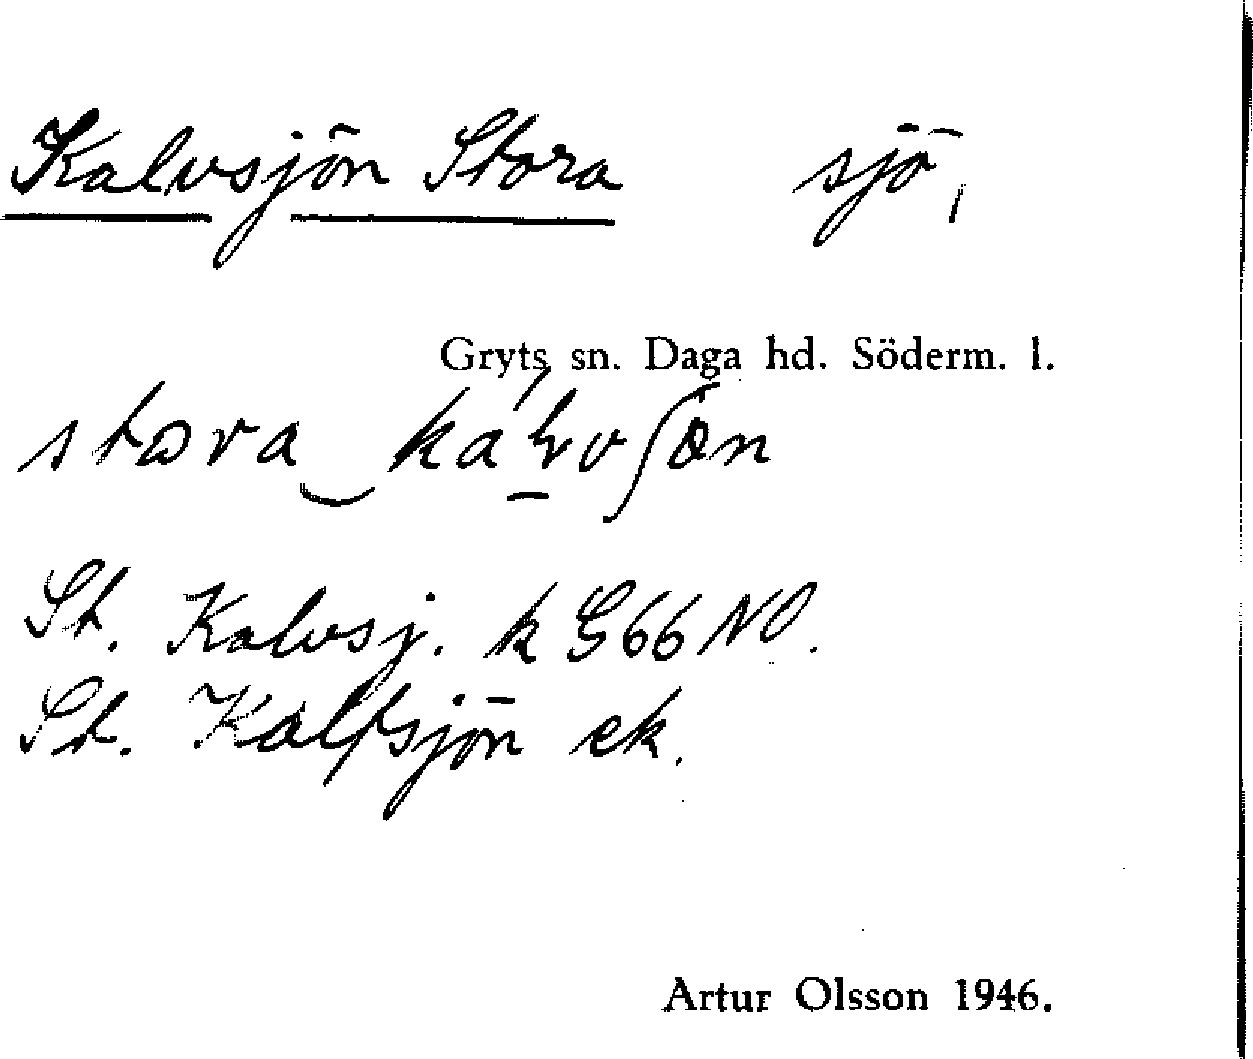 Kalvsjön Stora sjö,
Gryts sn. Daga hd. Söderm. l.
stora kalvʃön
St. Kalvsj. k G66 NO.
St. Kalfsjön ek.
Artur Olsson 1946.